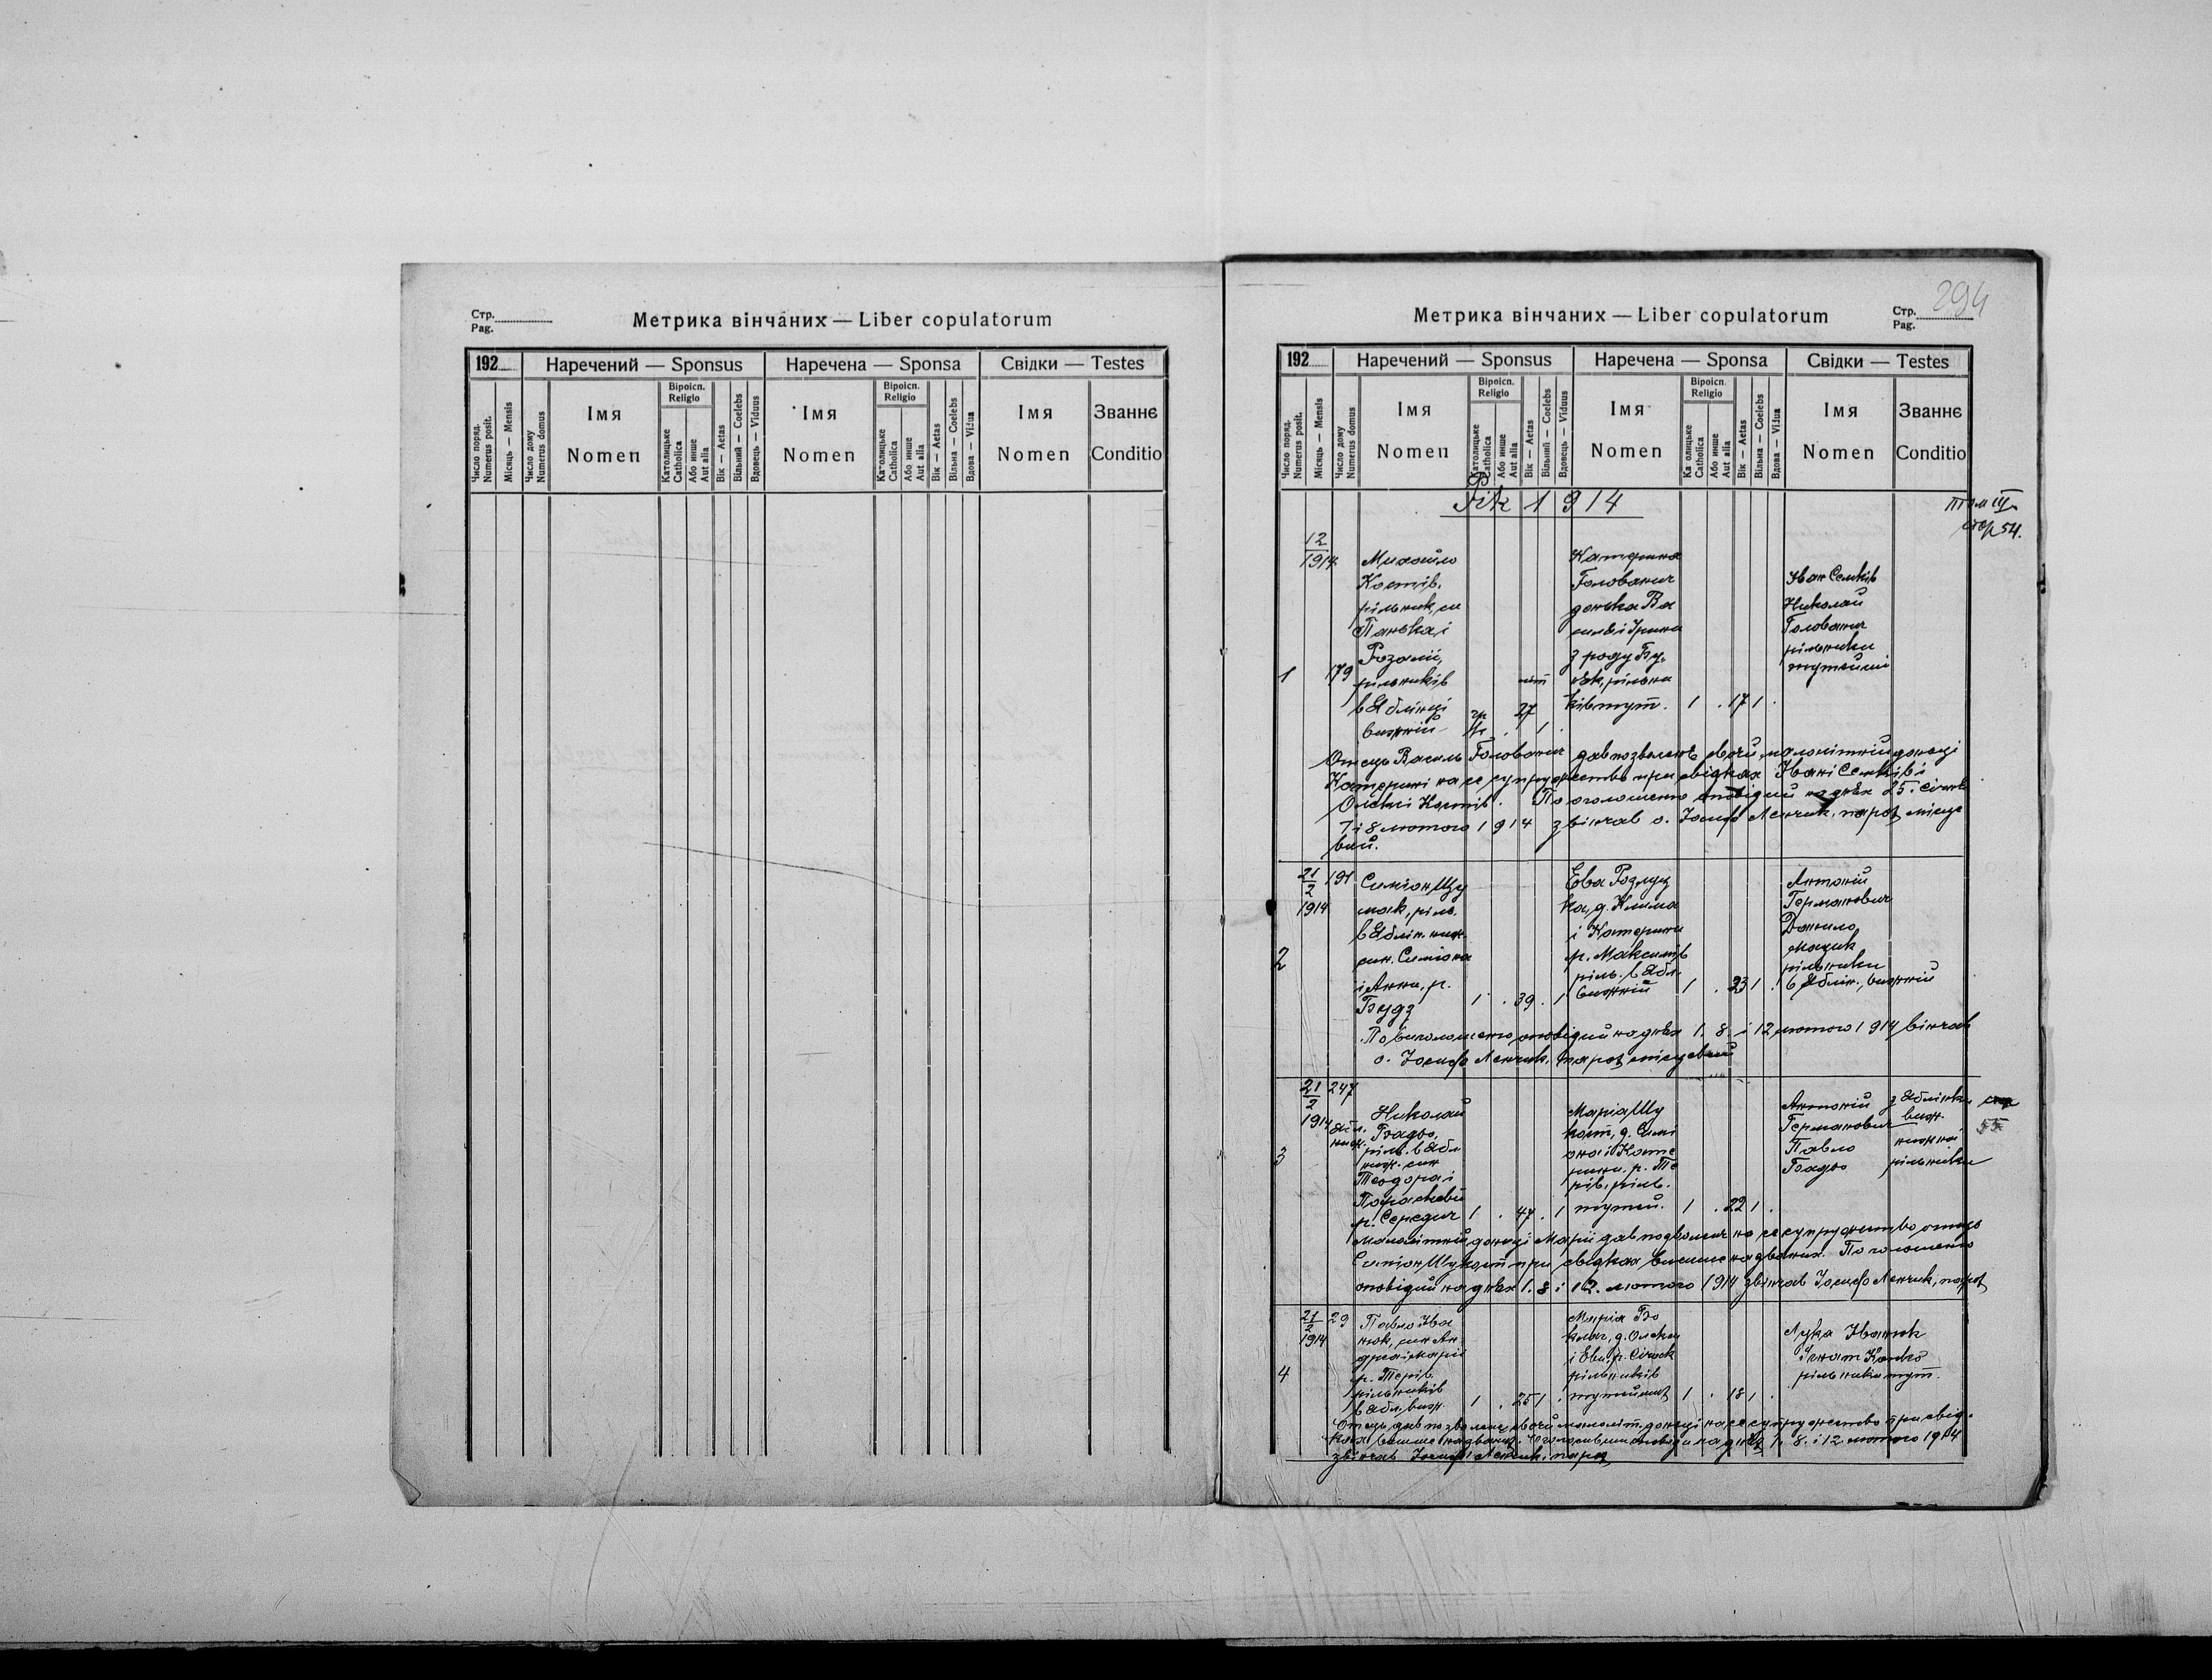 Стр.
Pag.
Метрика вінчаних — Liber copulatorum
192
Наречений — Sponsus
Наречена — Sponsa
Свідки — Testes
Число поряд. Numerus posit.
Місяць — Mensis
Число дому Numerus domus
Імя Nomen
Віроісп. Religio
Католицьке Catholica
Або инше Aut alia
Вік — Aetas
Вільний — Coelebs
Вдовець — Viduus
Імя Nomen
Віроісп. Religio
Католицьке Catholica
Або инше Aut alia
Вік — Aetas
Вільна — Coelebs
Вдова — Vidua
Імя Nomen
Званнє Conditio
Метрика вінчаних — Liber copulatorum
Стр. 294
Pag.
192
Наречений — Sponsus
Наречена — Sponsa
Свідки — Testes
Число поряд. Numerus posit.
Місяць — Mensis
Число дому Numerus domus
Імя Nomen
Віроісп. Religio
Католицьке Catholica
Або инше Aut alia
Вік — Aetas
Вільний — Coelebs
Вдовець — Viduus
Імя Nomen
Віроісп. Religio
Ка олицьке Catholica
Або инше Aut alia
Вік — Aetas
Вільна — Coelebs
Вдова — Vidua
Імя Nomen
Званнє Conditio
Рік 1914
том III
стр 54.
1
12
1914
179
Михайло
Костів,
рільник, си
Панька і
Розалії,
рільників
в Яблінці
вижній
27
1
Катерина
Голованич
донька Ва
силя і Ірини
з роду Бу
рільни
ків тут.
1 . 17 1 .
Іван Семків
Николай
Голованич
рільники
тутейші
Отець Василь Голованич дав позволенє своїй малолітній доньці
Катерині на се супружество при свідках Івані Семків і
Олексі Костів. По оголошеню оповідий на днях 25. січня
1 і 8 лютого 1914 звінчав о. Йосиф Ленчик, парох місце
вий.
2
21
2
1914
191
Симіон Шу
мак, ріль.
в Яблін. ниж.
син Симіона
і Анни, р.
Будз
1 . 39 . 1
Ева Розлуц
ка, д. Клима
і Катерини
р. Максимів
ріль. в Ябл.
вижній
1 . 23 1 .
Антоній
Германович
Данило
Мацик
рільники
в Яблін., вижній
По виголошеню оповідий на днях 1. 8. і 12 лютого 1914 вінчав
о. Йосиф Ленчик, парох місцевий
3
21
2
1914
247
Ябл.
ниж.
Николай
Бадьо,
ріль. в Ябл
ниж. син
Теодора і
Параскевії
р. Середич
1 . 47 . 1
Марія Шу
копт, д. Симі
она і Кате
рини, р. Те
рів, ріль.
тутей.
1 . 22 1 .
Антоній
Германович
Павло
Бадьо
з Яблінки
виж.
нижної
рільники
стр
55
Малолітній доньці Марії дав позволенє на се супружество отець
Симіон Шукопт при свідках висше наведених. По голошеню
оповідий на днях 1. 8. і 12. лютого 1914 звінчав Йосиф Ленчик, парох
4
21
2
1914
29
Павло Іва
нюк, син Ан
дрея і Марії
р. Терів
рільників
в Ябл. виж.
1 . 25 1 .
Марія Во
д. Олекси
і Еви, р. Січак
рільників
тутейших
1 . 18 1 .
Лука Іванюк
Ігнат
рільники тут.
Отець дав позволенє своїй малоліт. доньці на се супружество при свід
ках висше наведених. Оголосивши оповіди на днях 1. 8. і 12. лютого 1914
звінчав Йосиф Ленчик, парох